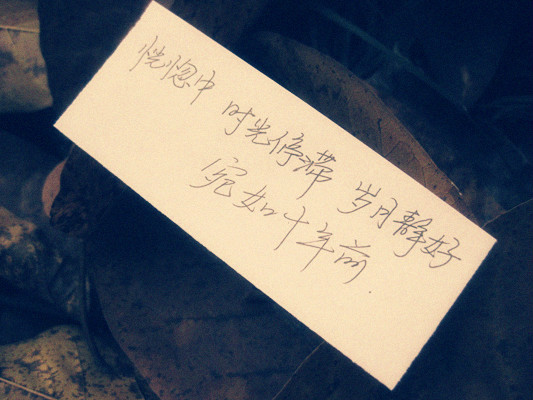 恍惚中 时光停滞 岁月静好
宛如十年前.